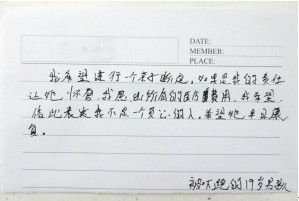 DATE:
MEMBER:
PLACE:
我希望进行一个亲子断定。如果是我的责任
让她怀孕,我愿出所有的医疗费用,我希望
借此表定我不是一个负心的人。希望她早日康
复。
被吓跑的19岁男孩